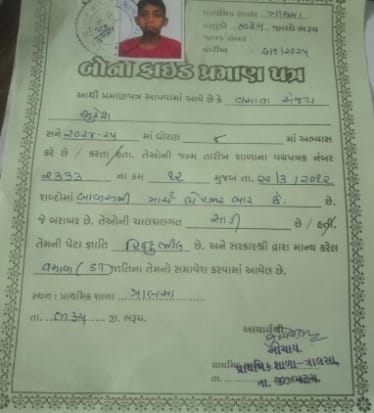 પ્રાથમિક શાળા
તારીખ ૬/૧/૨૦૨૫
બોનાફાઇડ પ્રમાણ પત્ર
આથી પ્રમાણપત્ર આપવામાં આવે છે કે વસાવા સંજય
સને ૨૦૨૪-૨૫ માં ધોરણ ૮ માં અભ્યાસ
કરે છે / કરતા હતા. તેઓની જન્મ તારીખ શાળાના વયપત્રક નંબર
૨૩૩૩ ના ક્રમ ૧૨ મુજબ તા. ૨૨/૩/૨૦૧૨
શબ્દોમાં બાવીસમી માર્ચ બે હજાર બાર છે.
જે બરાબર છે. તેઓની ચાલચલગત સારી છે / હતી.
તેમની પેટા જ્ઞાતિ હિન્દુ ભીલ છે. અને સરકારશ્રી દ્વારા માન્ય કરેલ
વસાવા (ST) જાતિના તેમનો સમાવેશ કરવામાં આવેલ છે.
સ્થળ : પ્રાથમિક શાળા ત્રાલસા
તા. ભરૂચ જી. ભરૂચ.
આચાર્યશ્રી
આચાર્ય
પ્રાથમિક શાળા-ત્રાલસા,
તા.જી.ભરૂચ